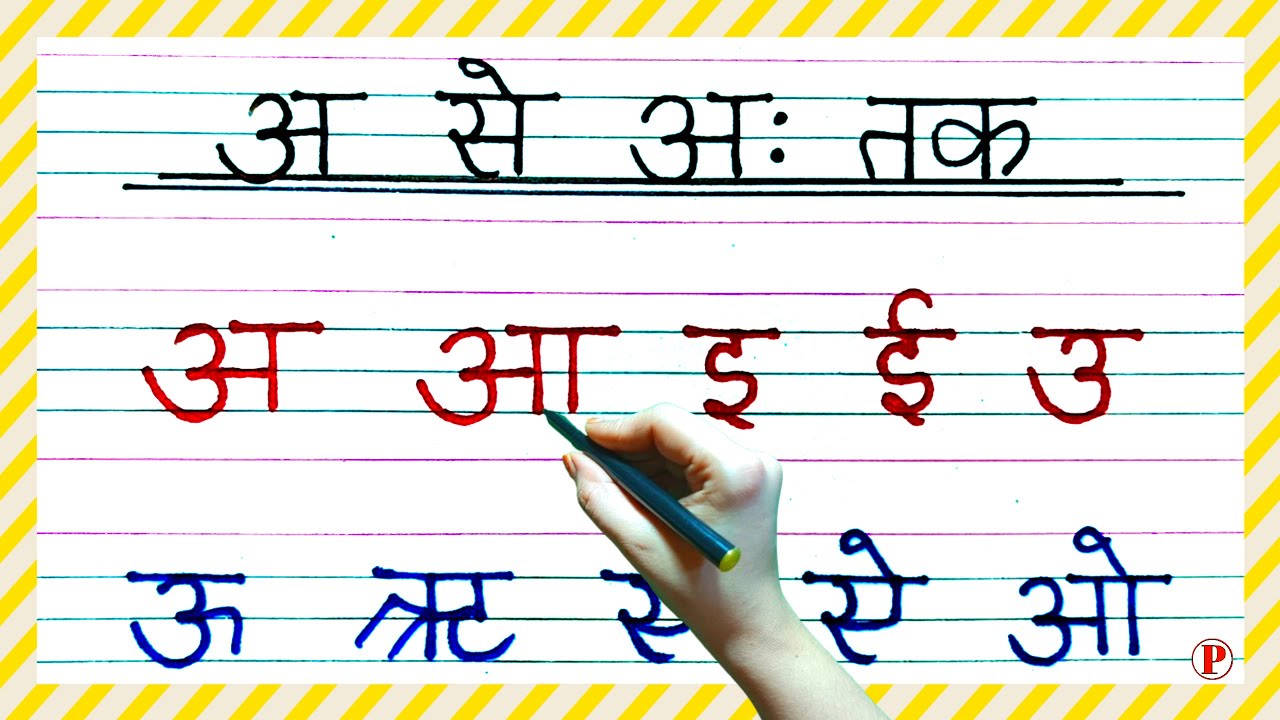 अ से अः तक
अ आ इ ई उ
ऊ ऋ ए ऐ ओ
P